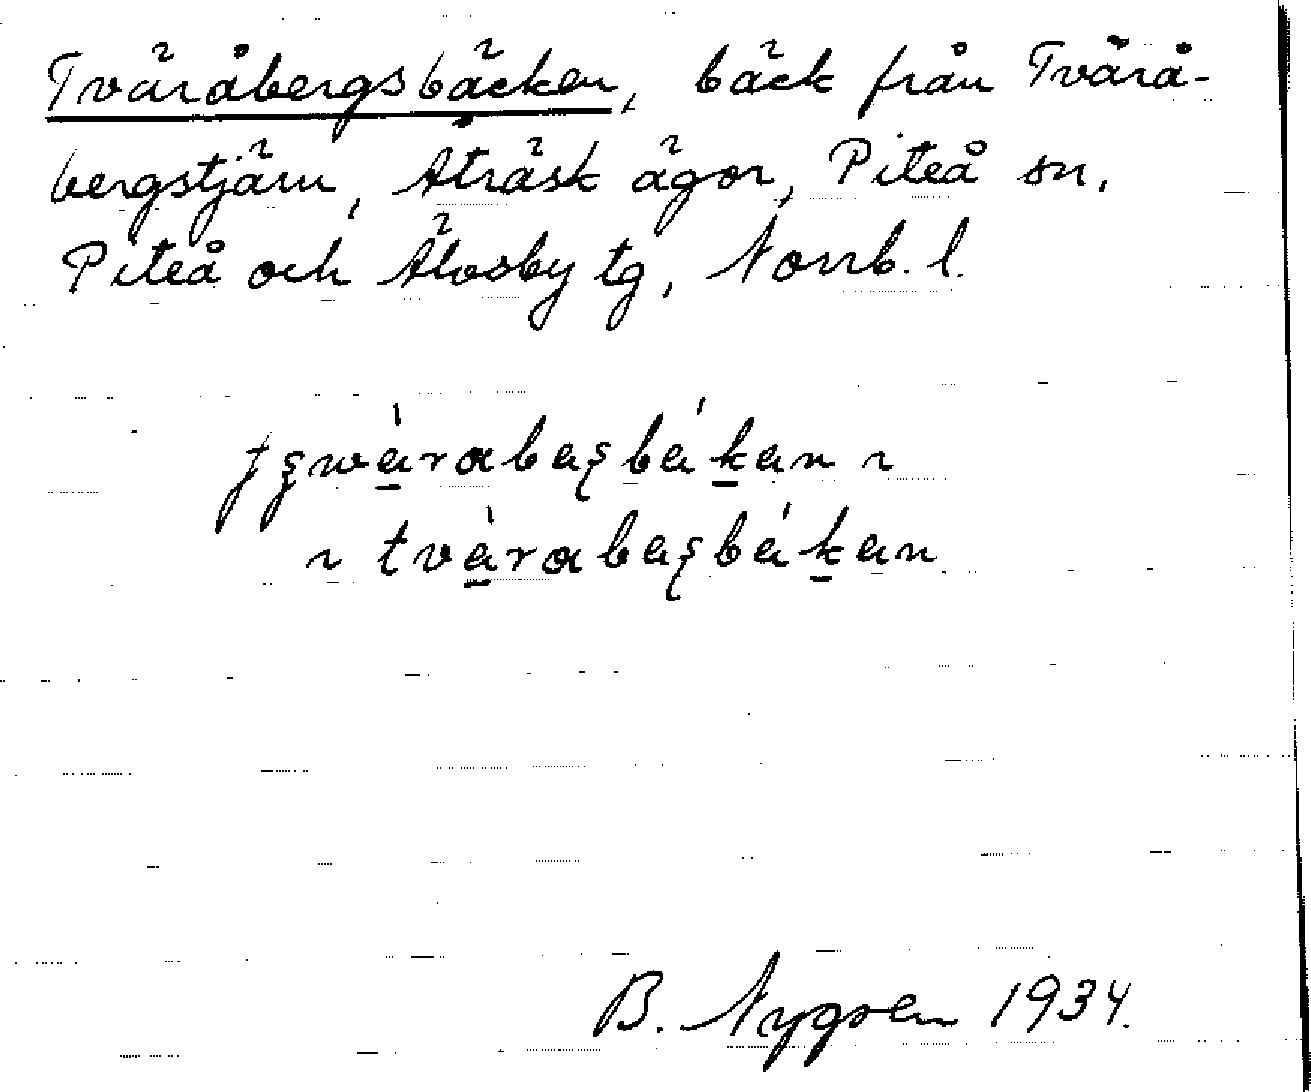 Tväråbergsbäcken, bäck från Tvärå-
bergstjärn, Åträsk ägor, Piteå sn,
Piteå och Älvsby tg, Norrb. l.
B. Nygren 1934.